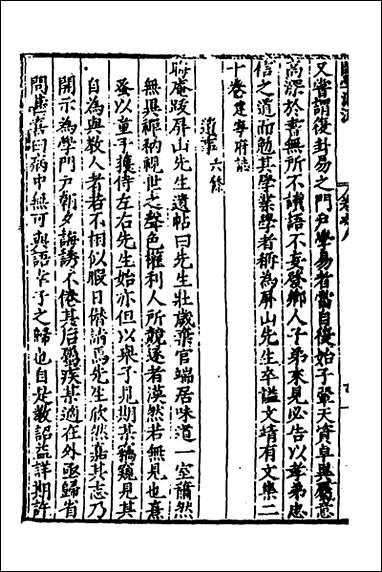 又嘗謂復卦易之門戶學易者當自復始子翬天資卓異屬意
高深於書無所不讀語不妄發鄉人子弟來見必告以孝弟忠
信之道而勉其學業學者稱為屏山先生卒謚文靖有文集二
十卷建寧府誌
遺事六條
晦庵跋屏山先生遺帖曰先生壯歲棄官端居味道一室蕭然
無異衲子視世之聲色權利人所競逐者漠然若無見也熹
蚤以童子獲侍左右先生始亦但以舉子見期某竊窺見其
自為與教人者若不相似暇日僭請焉先生欣然嘉其志乃
開示為學門戶朝夕誨誘不倦其后屬疾某適在外亟歸省
問其喜曰病中無可與語幸子之歸也自是教詔益詳期許